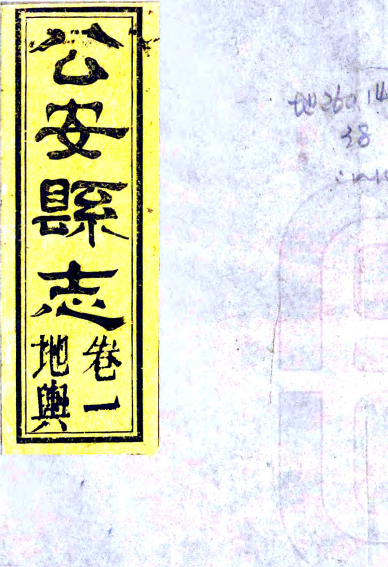 公安縣志
卷一
地輿
地260.14
38